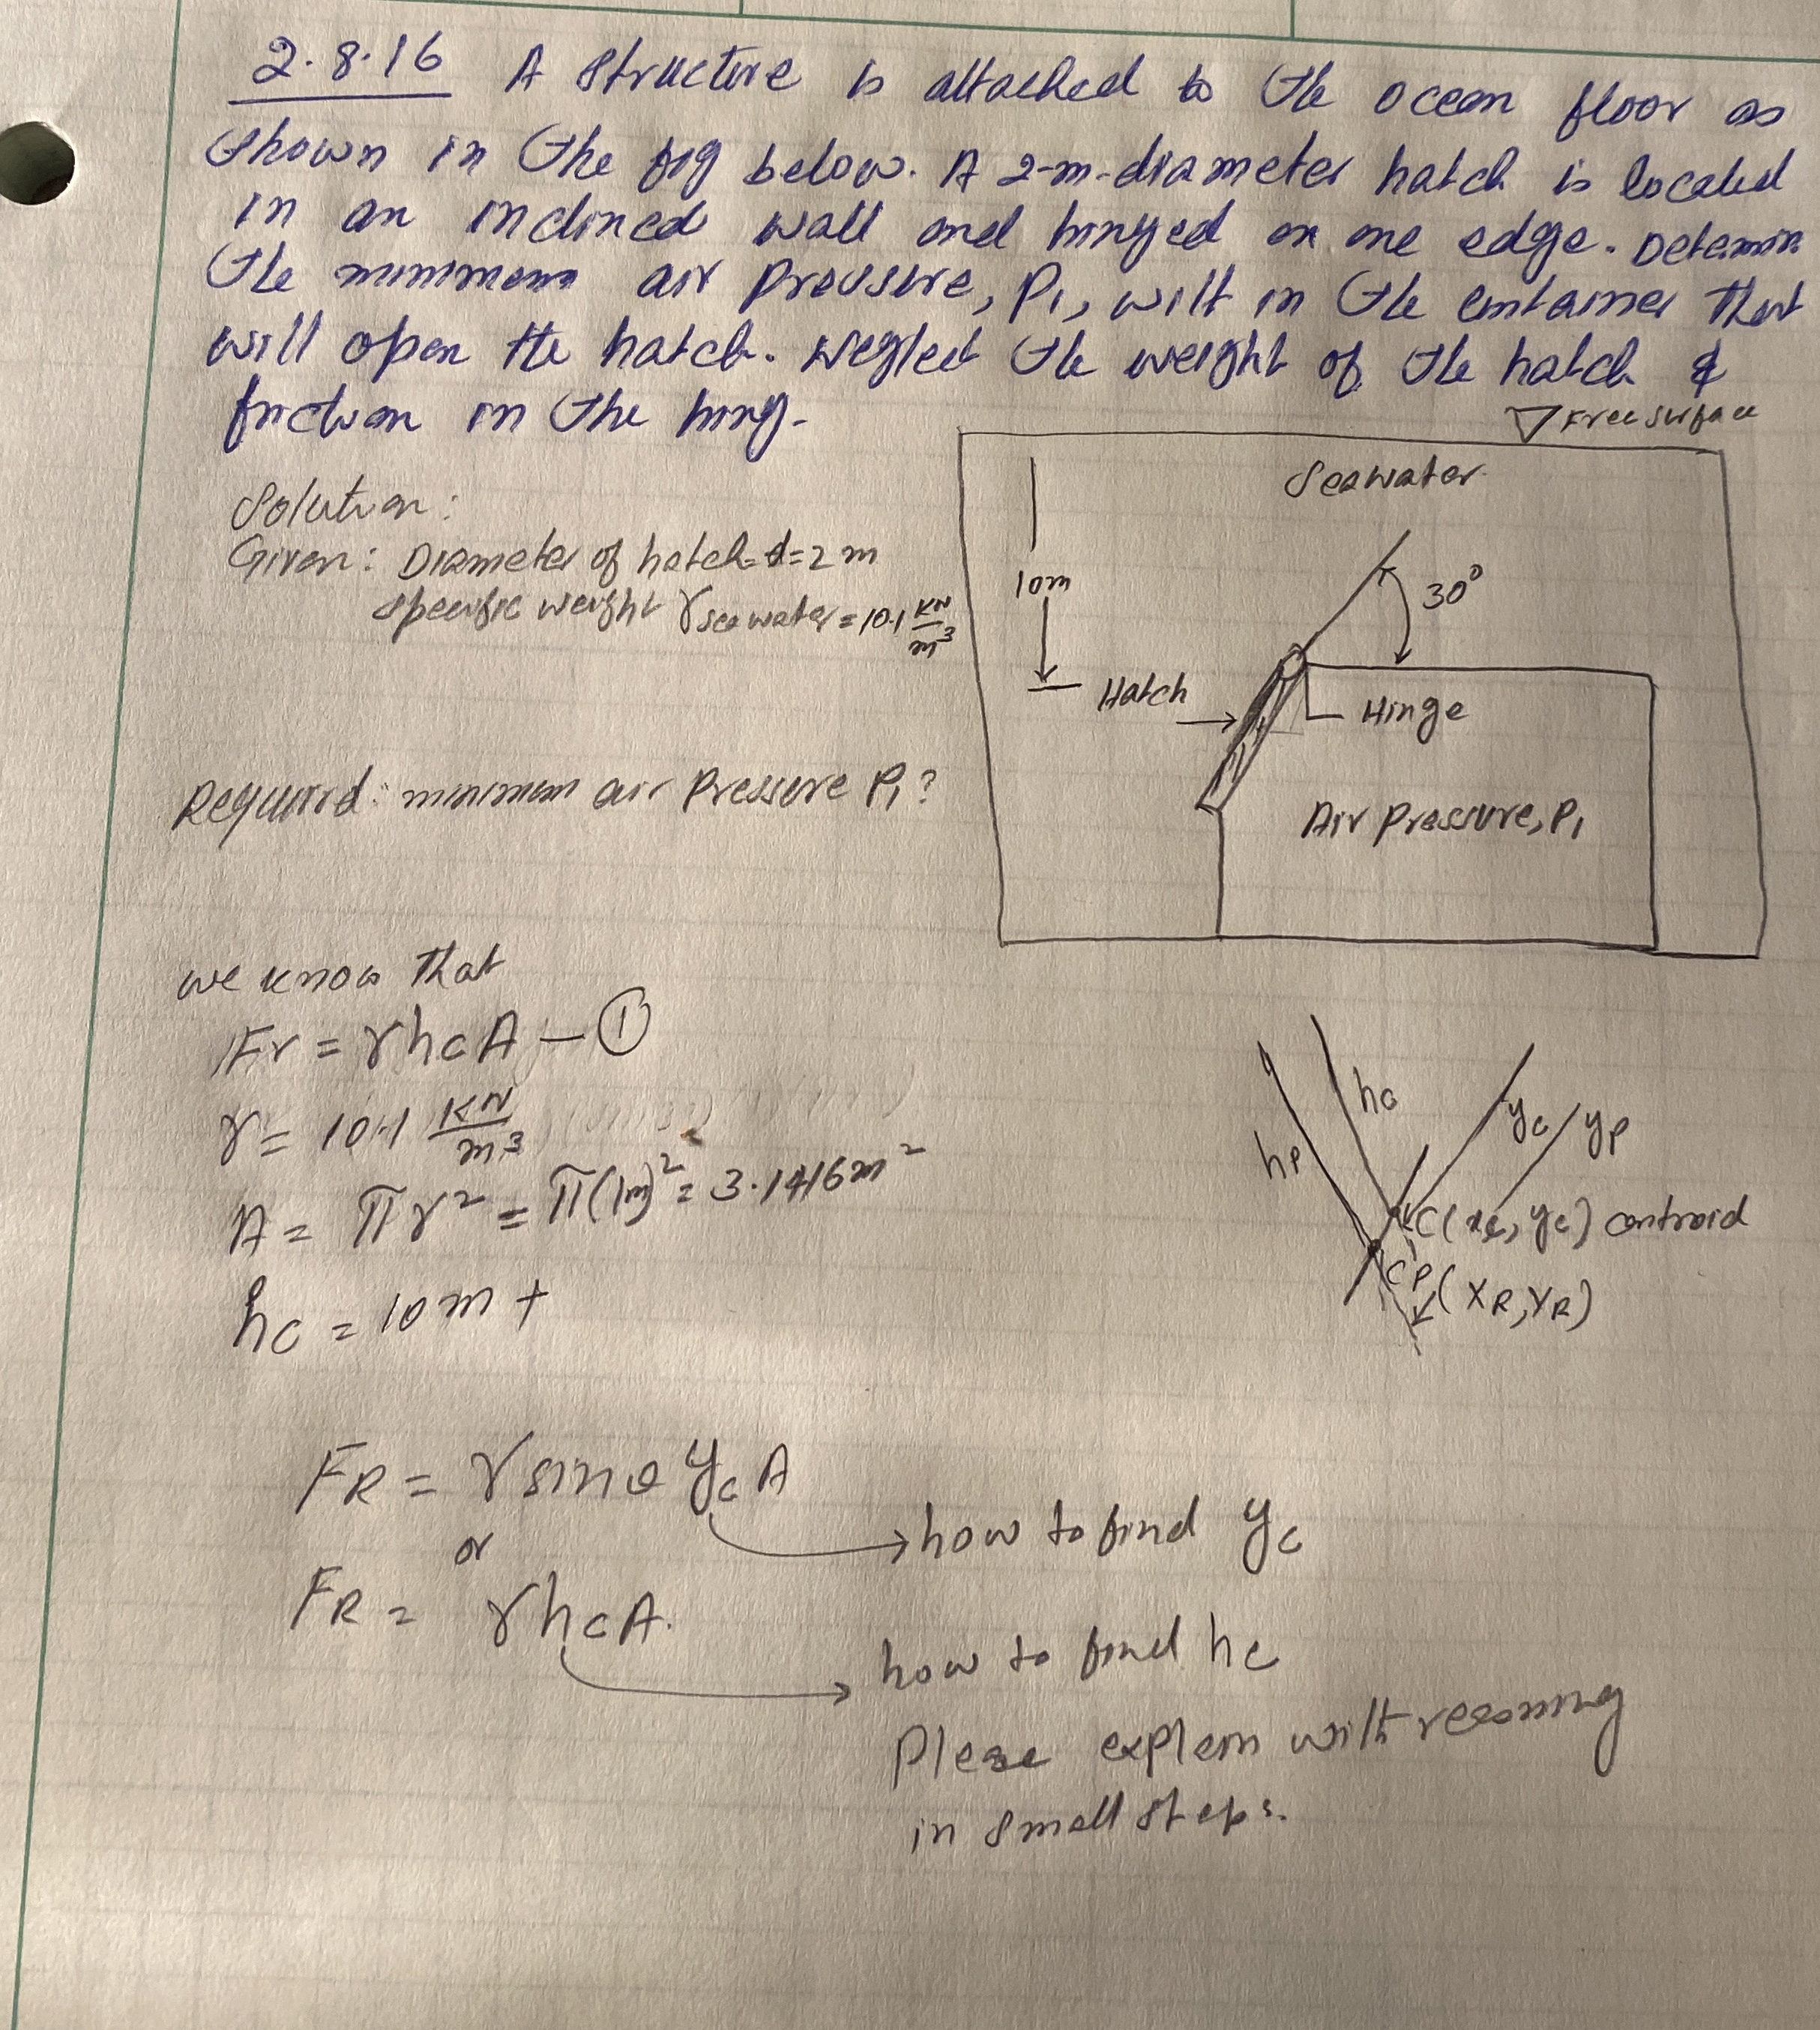 2.8.16 A structure is attached to the ocean floor as
shown in the fig below. A 2-m-diameter hatch is located
in an inclined wall and hinged on one edge. Determin
the minimum air pressure, P1, with in the container that
will open the hatch. Neglect the weight of the hatch &
friction in the hing.
▽ Free surface
Seawater
Solution:
Given: Diameter of hatch d=2m
specific weight γ sea water = 10.1 KN/m³
10m
30°
Hatch
Hinge
Required: minimum air Pressure P1?
Air Pressure, P1
we know that
Fr = γhcA — ①
γ = 10.1 KN/m³
A = πr² = π(1m)² = 3.1416m²
hc = 10m +
hc
hP
yc
yP
C(xc, yc) centroid
CP(XR, YR)
FR = γ sinθ yc A
or
how to find yc
FR = γhcA.
how to find hc
Please explain with reasoning
in small steps.